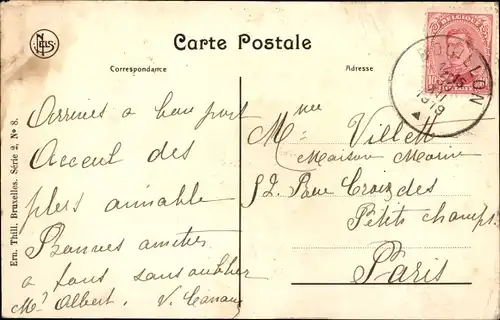 Carte Postale
Correspondance
Adresse
BELGIQUE
BOUILLON
1919
Ern. Thill, Bruxelles. Série 2, Nº 8.
NELS
Arrivés a bon port
Accent des
plus aimable
Bonnes amitiés
a tous sans oublier
Mr Albert. V.
Mme Villett
Maison
52 Rue Croix des
Petits champs
Paris